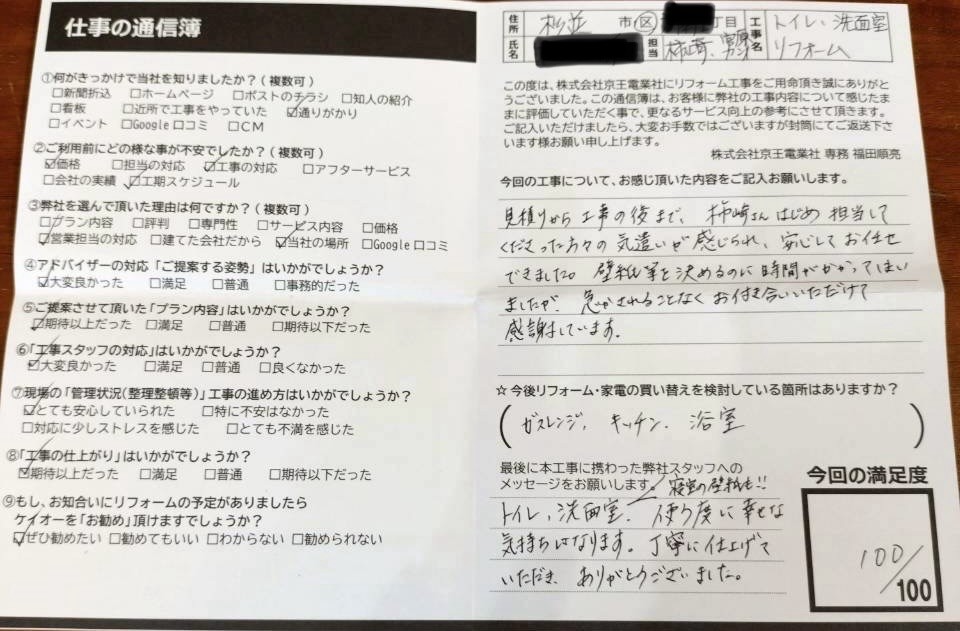 仕事の通信簿
①何がきっかけで当社を知りましたか？(複数可)
□新聞折込 □ホームページ □ポストのチラシ □知人の紹介
□看板 □近所で工事をやっていた ☑通りがかり
□イベント □Google口コミ □CM
②ご利用前にどの様な事が不安でしたか？(複数可)
☑価格 □担当の対応 ☑工事の対応 □アフターサービス
□会社の実績 ☑工期スケジュール
③弊社を選んで頂いた理由は何ですか？(複数可)
□プラン内容 □評判 □専門性 □サービス内容 □価格
☑営業担当の対応 □建てた会社だから ☑当社の場所 □Google口コミ
④アドバイザーの対応「ご提案する姿勢」はいかがでしょうか？
☑大変良かった □満足 □普通 □事務的だった
⑤ご提案させて頂いた「プラン内容」はいかがでしょうか？
☑期待以上だった □満足 □普通 □期待以下だった
⑥「工事スタッフの対応」はいかがでしょうか？
☑大変良かった □満足 □普通 □良くなかった
⑦現場の「管理状況(整理整頓等)」工事の進め方はいかがでしょうか？
☑とても安心していられた □特に不安はなかった
□対応に少しストレスを感じた □とても不満を感じた
⑧「工事の仕上がり」はいかがでしょうか？
☑期待以上だった □満足 □普通 □期待以下だった
⑨もし、お知合いにリフォームの予定がありましたら
ケイオーを「お勧め」頂けますでしょうか？
☑ぜひ勧めたい □勧めてもいい □わからない □勧められない
住所 杉並 市区 丁目 工事名 トイレ、洗面室
氏名 担当 柿崎、 リフォーム
この度は、株式会社京王電業社にリフォーム工事をご用命頂き誠にありがと
うございました。この通信簿は、お客様に弊社の工事内容について感じたま
まに評価していただく事で、更なるサービス向上の参考にさせて頂きます。
ご記入いただけましたら、大変お手数ではございますが封筒にてご返送下さ
います様お願い申し上げます。
株式会社京王電業社 専務 福田順亮
今回の工事について、お感じ頂いた内容をご記入お願いします。
見積りから工事の後まで、柿崎さんはじめ担当して
くださった方々の気遣いが感じられ、安心してお任せ
できました。壁紙等を決めるのに時間がかかってしまい
ましたが、急かされることなくお付き合いいただけて
感謝しています。
☆今後リフォーム・家電の買い替えを検討している箇所はありますか？
(ガスレンジ、キッチン、浴室)
最後に本工事に携わった弊社スタッフへの
メッセージをお願いします。 寝室の壁紙も!!
トイレ、洗面室、使う度に幸せな
気持ちになります。丁寧に仕上げて
いただき、ありがとうございました。
今回の満足度
100/100